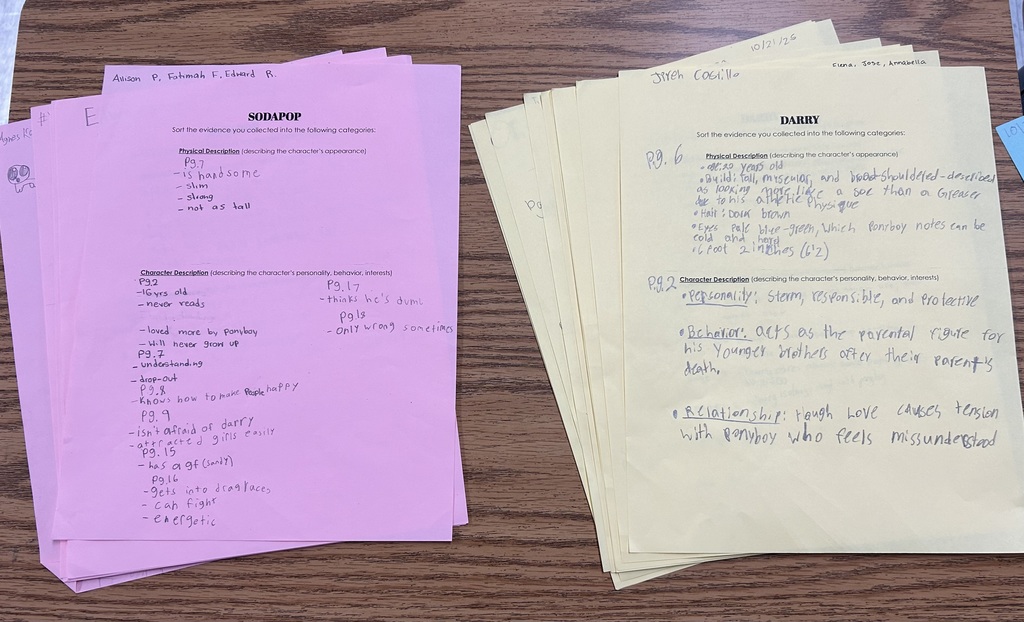 Allison P, Fatimah F, Edward R.
#
E
SODAPOP
Sort the evidence you collected into the following categories:
Physical Description (describing the character's appearance)
Pg.7
- is handsome
- slim
- strong
- not as tall
Character Description (describing the character's personality, behavior, interests)
Pg.2
-16 yrs old
- never reads
- loved more by Ponyboy
- will never grow up
Pg.7
- understanding
- drop-out
Pg.8
- knows how to make people happy
Pg. 9
- isn't afraid of darry
- attracted girls easily
Pg. 15
- has a gf (sandy)
Pg.16
- gets into dragraces
- can fight
- energetic
Pg. 17
- thinks he's dumb
Pg.18
- Only wrong sometimes
10/21/25
Elena, Jose, Annabella
Jireh Costillo
DARRY
Sort the evidence you collected into the following categories:
Pg. 6
Physical Description (describing the character's appearance)
• age: 20 years old
• Build: tall, myscular, and broad-shouldered-described
as looking more like a Soc than a Greaser
due to his athletic Physique
• Hair: Dark brown
• Eyes Pale blue-green, which Ponyboy notes can be
cold and hard
• 6 foot 2 inches (6'2)
Pg.2
Character Description (describing the character's personality, behavior, interests)
• Personality: Stern, responsible, and protective
• Behavior: acts as the parental figure for
his younger brothers after their parent's
death.
• Relationship: tough love causes tension
with Ponyboy who feels missunderstood
Pg